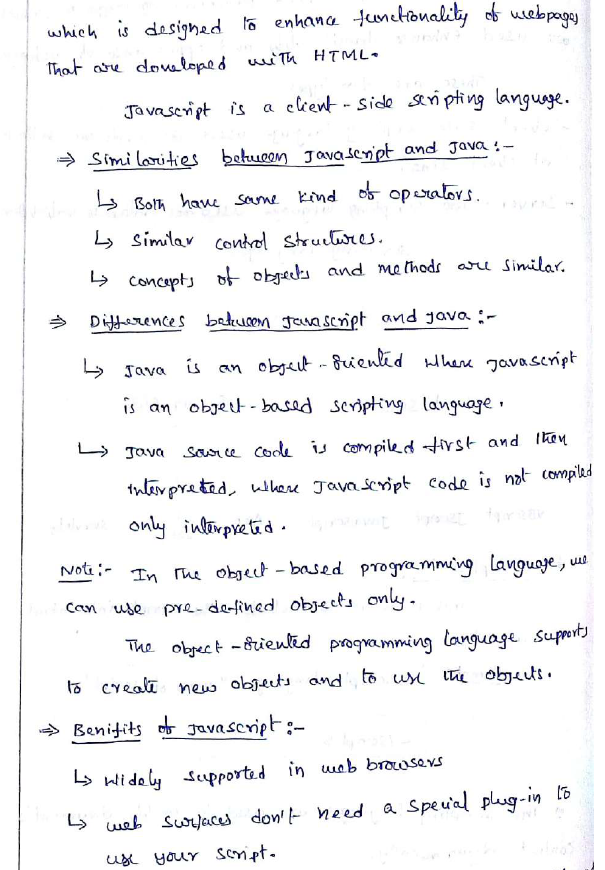 which is designed to enhance functionality of webpages
that are developed with HTML.
Javascript is a client - side scripting language.
⇒ Similarities between Javascript and Java :-
↳ Both have same kind of operators.
↳ Similar control structures.
↳ concepts of objects and methods are similar.
⇒ Differences between Javascript and java :-
↳ Java is an object - oriented where javascript
is an object - based scripting language.
↳ Java source code is compiled first and then
interpreted, where JavaScript code is not compiled
only interpreted.
Note :- In the object - based programming language, we
can use pre-defined objects only.
The object - oriented programming language supports
to create new objects and to use the objects.
⇒ Benifits of Javascript :-
↳ Widely supported in web browsers
↳ web surfaces don't need a special plug-in to
use your script.